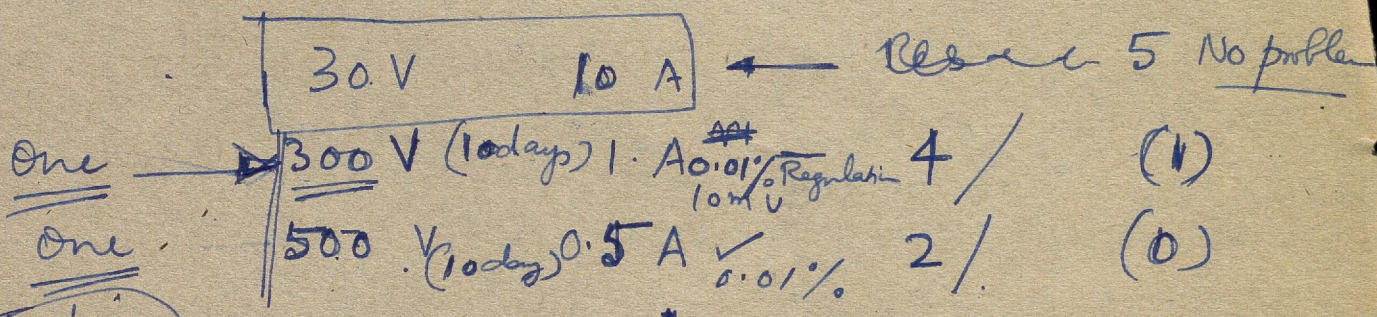 30.V 10 A ← 5 No problem
One → 300 V (10days) 1. A 0.01% Regulation 4 / (1)
10mV
One 500 V (10day) 0.5 A ✓ 0.01% 2 /. (0)